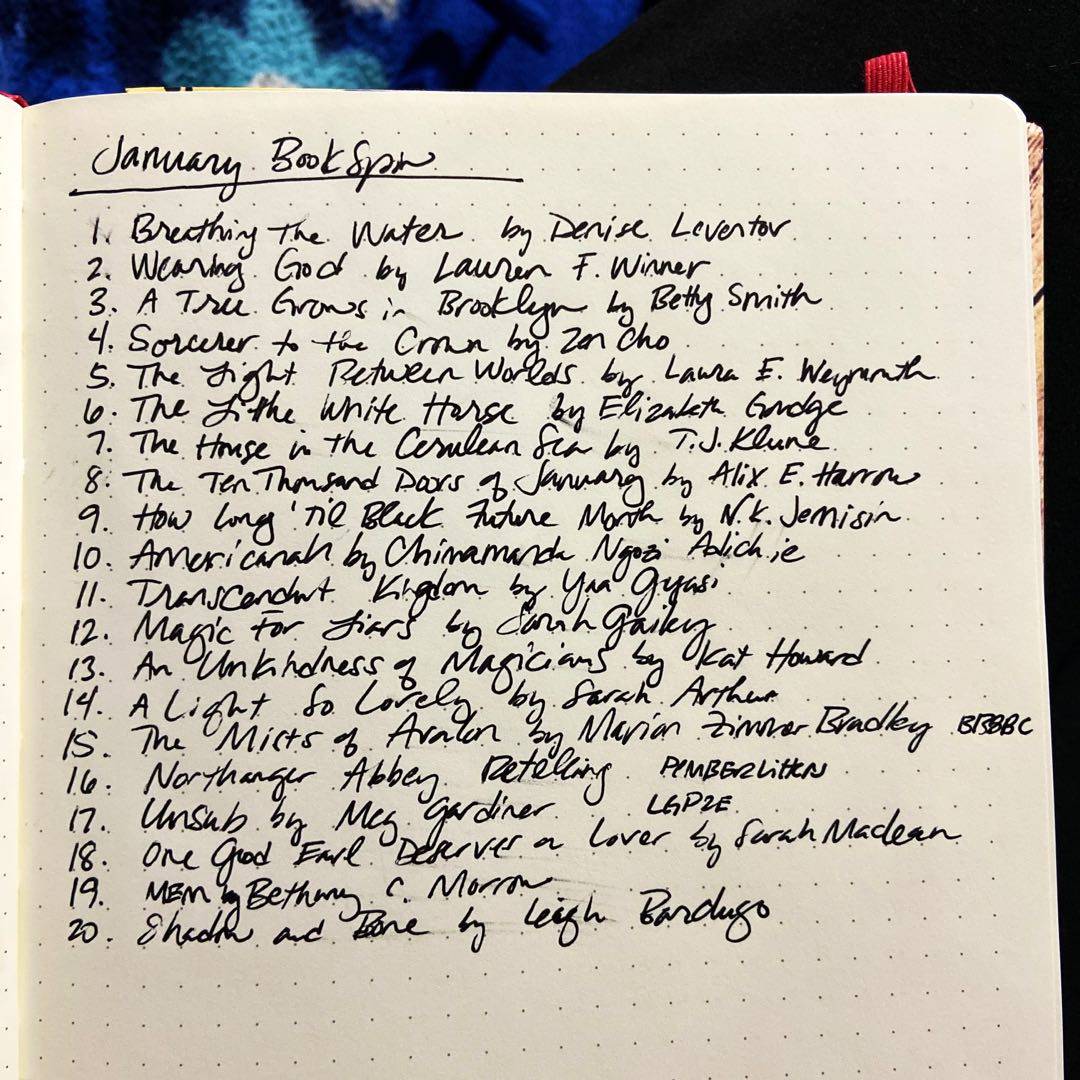 January BookSpin
1. Breathing The Water by Denise Levertov
2. Wearing God by Lauren F. Winner
3. A Tree Grows in Brooklyn by Betty Smith
4. Sorcerer to the Crown by Zen Cho
5. The Light Between Worlds by Laura E. Weymouth
6. The Little White Horse by Elizabeth Goudge
7. The House in the Cerulean Sea by T.J. Klune
8. The Ten Thousand Doors of January by Alix E. Harrow
9. How Long 'Til Black Future Month by N.K. Jemisin
10. Americanah by Chimamanda Ngozi Adichie
11. Transcendent Kigdom by Yaa Gyasi
12. Magic For Liars by Sarah Gailey
13. An Unkindness of Magicians by Kat Howard
14. A Light So Lovely by Sarah Arthur
15. The Mists of Avalon by Marion Zimmer Bradley BBBBC
16. Northanger Abbey Retelling PEMBERLITTEN
17. UnSub by Meg Gardiner LGP2E
18. One Good Earl Deserves a Lover by Sarah Maclean
19. MEM by Bethany C. Morrow
20. Shadow and Bone by Leigh Bardugo